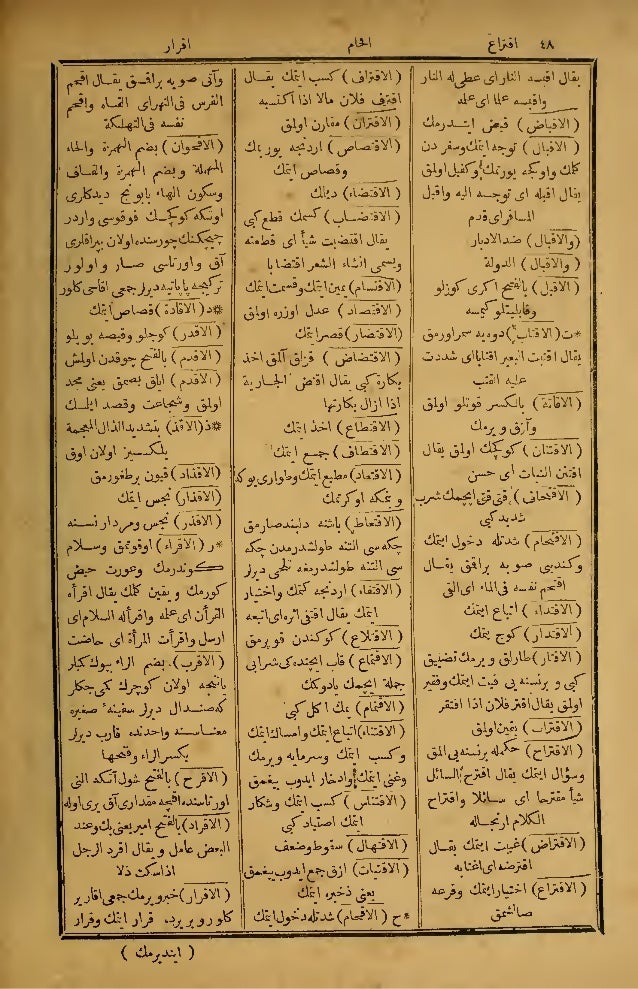 ٤٨ اقتراع
الحام
اقرار
يقال اقبسه النار اى اعطى له النار
واقبسه علما اى علمه
( الاقباض ) قبض ايتدرمك
( الاقبال ) توجه ايتمك وسفردن
كلمك واوكجه يورتمك وكفيل اولق
يقال اقبله اى توجه اليه واقبل
المسافر اى قدم
( والاقبال ) ضد الادبار
( والاقبال ) الدولة
( الاقبل ) بالفتح اكرى كوزلو
وقابليتلو كيمسه
*ت ( الاقتاب ) دوه يه سمر اورمق
يقال اقتبت البعير اقتابا اى شددت
عليه القتب
( الاقاتة ) بالكسر قوتلو اولق
وآزق ويرمك
( الاقتنان ) كوچك اولق يقال
اقتن النبات اى حسن
( الاقتحاف ) قتى قتى ايچمك شرب
شديد كبى
( الاقتحام ) شدتله دخول ايتمك
وكنديى صويه براقق يقال
اقتحم نفسه فى الماء اى القى
( الاقتداء ) اتباع ايتمك
( الاقتدار ) كوج يتمك
( الاقتار ) طارلق ويرمك تضييق
كبى و برنسنه يى قيت ايتمك وفقير
اولق يقال اقتر فلان اذا افتقر
( الاقتراب ) يقين اولق
( الاقتراح ) حكمله برنسنه يى المق
وسؤال ايتمك يقال اقترح السائل
شيأ مقترحا اى سائلا واقتراح
الكلام ارتجاله
( الاقتراض ) غيبت ايتمك يقال
اقترضه اى اغتابه
( الاقتراع ) اختيار ايتمك وقرعه
صالشمق
( الاقتراف ) كسب ايتمك يقال
اقترف فلان مالا اذا اكتسبه
( الاقتران ) مقارن اولق
( الاقتصاص ) اردنجه يوريمك
وقصاص ايتمك
( الاقتضاء ) ديلك
( الاقتضاب ) كسمك قطع كبى
يقال اقتضبت شيأ اى قطعته
ويسمى انشاء الشعر اقتضابا
( الاقتسام ) يمين ايتمك وقسمت ايتمك
( الاقتصاد ) عدل اوزره اولق
( الاقتصار ) قصر ايتمك
( الاقتضاض ) قزلق آلمق اخذ
بكارة كبى يقال اقتض الجارية
اذا ازال بكارتها
( الاقتطاع ) اخذ ايتمك
( الاقتطاف ) جمع ايتمك
( الاقتعاد ) مطيع ايتمك وطوارى يوكه
و بنمكه اوكرتمك
( الاقتعاط ) باشنه دلبند صارمق
چكه سى التنه طولشدرمدن چكه
سى التنه طولشدرمغه تلحى ديرلر
( الاقتفاء ) اردنجه كتمك واختيار
ايتمك يقال اقتفى اثره اى اتبعه
( الاقتلاع ) كوكندن قوپرمق
( الاقتماع ) قاب ايچنده كى شرابى
جمله ايچمك يا دوكمك
( الاقتمام ) يمك اكل كبى
( الاقتناء ) اتباع ايتمك وامساك ايتمك
وكسب ايتمك وسرمايه ويرمك
وغنى ايتمك وادخار ايدوب ييغمق
( الاقتناس ) كسب ايتمك وشكار
ايتمك اصطياد كبى
( الاقتهال ) سقوط وضعف
( الاقتيات ) ازق جمع ايدوب ييغمق
يعنى ذخيره ايتمك
*ح ( الاقحام ) شدتله دخول ايتمك
وآنى صويه براقمق يقال اقحم
الفرس فى النهر اى القاه واقحم
نفسه فى التهلكة
( الاقحوان ) بضم الهمزة والحاء
المهملة وبضم الهمزة والقاف
وسكون الهاء بابونج ديدكلرى
اوتكه كوچك قوقوسى واردر
چيچكنك چورسنده اولان يپراقلرى
آق واورتاسى صارو اولور
تركيجه پاپاتيه ديرلر جمعى اقاحى كلور
*د ( الاقادة ) قصاص ايتمك
( الاقدر ) كوجلو وقيصه بويلو
( الاقدم ) بالفتح چوقدن اولمش
( الاقدم ) اياق بصمق يعنى مجد
اولق وشجاعت وقصد ايلمك
*ذ ( الاقذ ) بتشديد الذال المعجمة
يلكسيز اولان اوق
( الاقذاذ ) قيون برطغورمق
( الاقذار ) نجس ايتمك
( الاقذر ) نجس ومردار نسنه
*ر ( الاقراء ) اوقوتمق وسلام
كوندرمك وعورت حيض
كورمك و يقين كلمك يقال اقرأه
القرأن اى علمه واقرأله السلام اى
ارسل واقرأت المرأة اى حاضت
( الاقرب ) بضم الراء بيوك كيلر
يانجه اولان كوچرك كى چكلر
كه صندال ديرلر سفينهٔ صغيره
معناسنه واحدنده قارب ديرلر
بكسر الراء وفتحها
( الاقرح ) بالفتح شول آتكه آلنى
اورتاسنده اقچه مقدارى آق يرى اوله
( الاقراد ) بالفتح امير يعنى بك وعند
البعض عامل و يقال اقرد الرجل
اذا سكت ذلا
( الاقرار ) خبر ويرمك جمعى اقارير
كلور و يرده قرار ايتمك وقرار
( ايتديرمك )